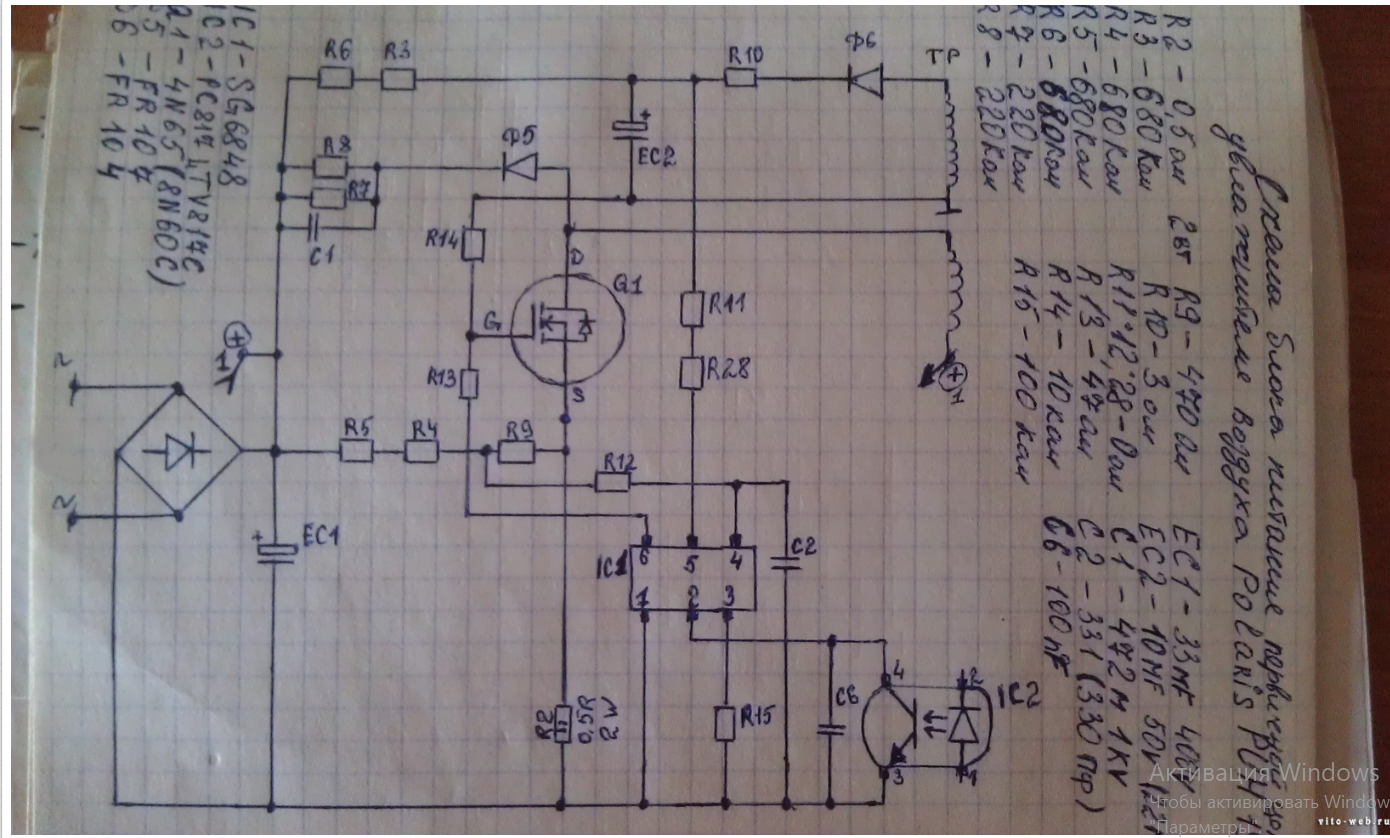 Схема блока питания первичной цепи
увлажнителя воздуха Polaris PUH
R2 - 0,5 ом 2вт R9 - 470 ом EC1 - 33mF 400v
R3 - 680 Ком R10 - 3 ом EC2 - 10MF 50v
R4 - 680 Ком R11·12;28 - 0 ом C1 - 472M 1KV
R5 - 680 Ком R13 - 47 ом C2 - 331 (330 пф)
R6 - 680 Ком R14 - 10 ком C6 - 100 nF
R7 - 220 Ком R15 - 100 ком
R8 - 220 Ком
IC1 - SG6848
IC2 - PC817 LTV817C
Q1 - 4N65 (8N60C)
Д5 - FR107
Д6 - FR104
R6 R3 R10 Д6 ТР
EC2
R8 Д5
R7
C1
R14 D
Q1
G
R11
R28
R13
S
+ 1
+ 1
~
~
R5 R4 R9
R12
EC1
C2
IC1
6 5 4
1 2 3
R2 0,5R 2W
R15
C6
4 2
IC2
3 1
Активация Windows
Чтобы активировать Window
"Параметры".
vito-web.ru